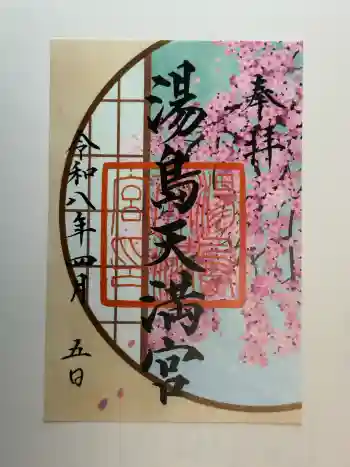 奉拝
湯島天満宮
令和八年四月
五日